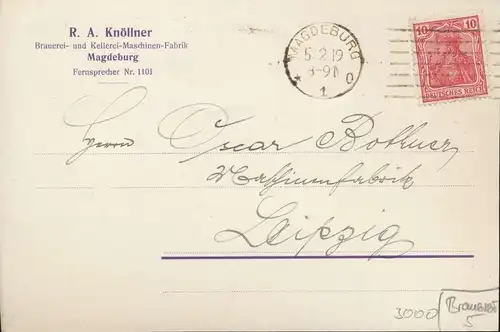 R. A. Knöllner
Brauerei- und Kellerei-Maschinen-Fabrik
Magdeburg
Fernsprecher Nr. 1101
MAGDEBURG
5.2.19
8-9N
* 1 o
10 10
DEUTSCHES REICH
Herrn Oscar Bothner
Maschinenfabrik
Leipzig
3000
5